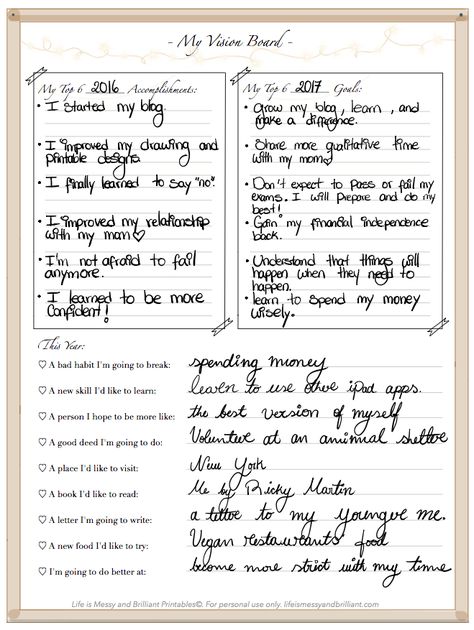 - My Vision Board -
My Top 6 2016 Accomplishments:
• I started my blog.
• I improved my drawing and
printable designs.
• I finally learned to say "no".
• I improved my relationship
with my mom♡
• I'm not afraid to fail
anymore.
• I learned to be more
confident!
My Top 6 2017 Goals:
• Grow my blog, learn, and
make a difference.
• Share more qualitative time
with my mom♡
• Don't expect to pass or fail my
exams. I will prepare and do my
best!
• Gain my financial independence
back.
• Understand that things will
happen when they need to
happen.
• learn to spend my money
wisely.
This Year:
♡ A bad habit I'm going to break: spending money
♡ A new skill I'd like to learn: learn to use other iPad apps.
♡ A person I hope to be more like: the best version of myself
♡ A good deed I'm going to do: Volunteer at an animal shelter
♡ A place I'd like to visit: New York
♡ A book I'd like to read: Me by Ricky Martin
♡ A letter I'm going to write: a letter to my younger me.
♡ A new food I'd like to try: Vegan restaurants' food
♡ I'm going to do better at: become more strict with my time
Life is Messy and Brilliant Printables©. For personal use only. lifeismessyandbrilliant.com